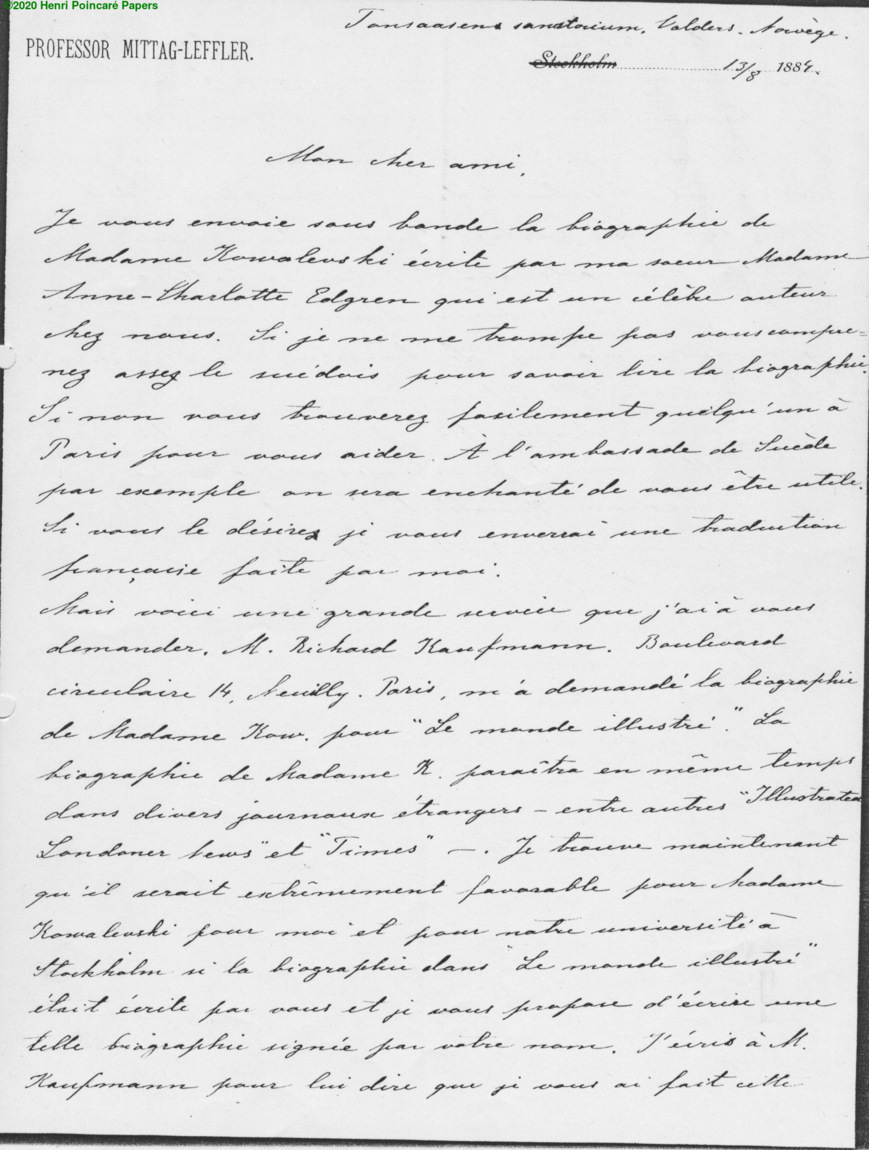 ©2020 Henri Poincaré Papers
Tonsaasens sanatorium, Valders. Norvège.
PROFESSOR MITTAG-LEFFLER.
Stockholm 13/8 1884.
Mon cher ami,
Je vous envoie sous bande la biographie de
Madame Kowalevski écrite par ma soeur Madame
Anne-Charlotte Edgren qui est un célèbre auteur
chez nous. Si je ne me trompe pas vous compre=
nez assez le suédois pour savoir lire la biographie.
Si non vous trouverez facilement quelqu'un à
Paris pour vous aider. À l'ambassade de Suède
par exemple on sera enchanté de vous être utile.
Si vous le désirez je vous enverrai une traduction
française faite par moi.
Mais voici une grande service que j'ai à vous
demander. M. Richard Kaufmann. Boulevard
circulaire 14, Neuilly. Paris, m'a demandé la biographie
de Madame Kow. pour "Le monde illustré". La
biographie de Madame K. paraîtra en même temps
dans divers journaux étrangers – entre autres "Illustrated
Londoner News" et "Times" –. Je trouve maintenant
qu'il serait extrêmement favorable pour Madame
Kowalevski pour moi et pour notre université à
Stockholm si la biographie dans "Le monde illustré"
était écrite par vous et je vous propose d'écrire une
telle biographie signée par votre nom. J'écris à M.
Kaufmann pour lui dire que je vous ai fait cette